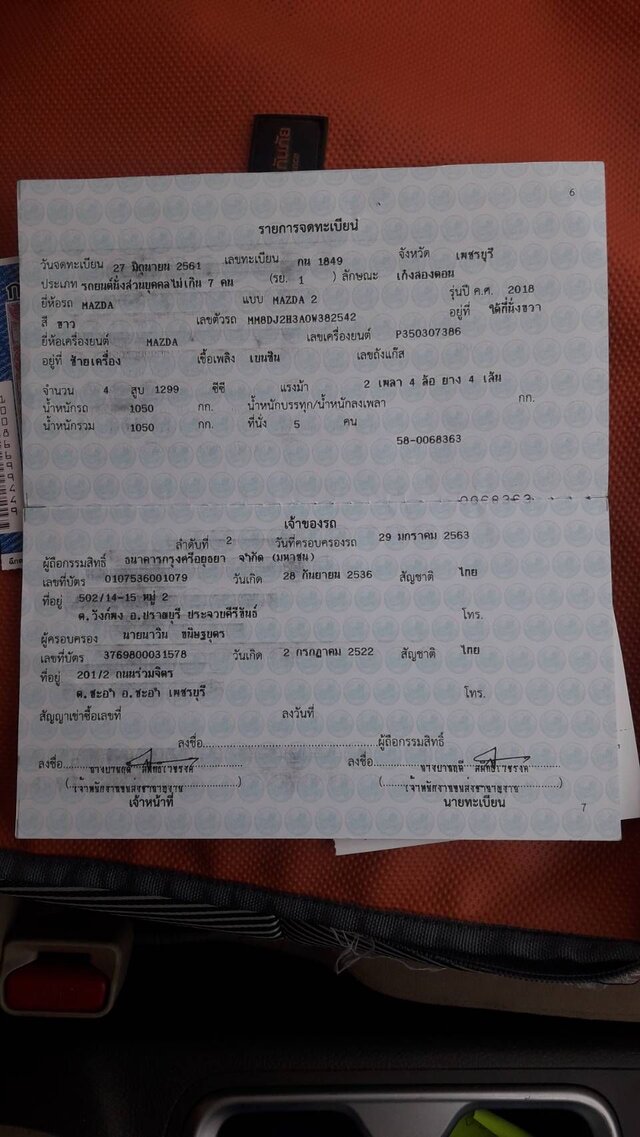 6
รายการจดทะเบียน
วันจดทะเบียน 27 มิถุนายน 2561 เลขทะเบียน กน 1849 จังหวัด เพชรบุรี
ประเภท รถยนต์นั่งส่วนบุคคลไม่เกิน 7 คน (รย. 1 ) ลักษณะ เก๋งสองตอน
ยี่ห้อรถ MAZDA แบบ MAZDA 2 รุ่นปี ค.ศ. 2018
สี ขาว เลขตัวรถ MM8DJ2H3A0W382542 อยู่ที่ ใต้ที่นั่งขวา
ยี่ห้อเครื่องยนต์ MAZDA เลขเครื่องยนต์ P350307386
อยู่ที่ ซ้ายเครื่อง เชื้อเพลิง เบนซิน เลขถังแก๊ส
จำนวน 4 สูบ 1299 ซีซี แรงม้า 2 เพลา 4 ล้อ ยาง 4 เส้น
น้ำหนักรถ 1050 กก. น้ำหนักบรรทุก/น้ำหนักลงเพลา กก.
น้ำหนักรวม 1050 กก. ที่นั่ง 5 คน
58-0068363
0068363
เจ้าของรถ
ลำดับที่ 2 วันที่ครอบครองรถ 29 มกราคม 2563
ผู้ถือกรรมสิทธิ์ ธนาคารกรุงศรีอยุธยา จำกัด (มหาชน)
เลขที่บัตร 0107536001079 วันเกิด 28 กันยายน 2536 สัญชาติ ไทย
ที่อยู่ 502/14-15 หมู่ 2
ต.วังก์พง อ.ปราณบุรี ประจวบคีรีขันธ์ โทร.
ผู้ครอบครอง นายนาวิน ขนิษฐบุตร
เลขที่บัตร 3769800031578 วันเกิด 2 กรกฎาคม 2522 สัญชาติ ไทย
ที่อยู่ 201/2 ถนนร่วมจิตร
ต.ชะอำ อ.ชะอำ เพชรบุรี โทร.
สัญญาเช่าซื้อเลขที่ ลงวันที่
ลงชื่อ ผู้ถือกรรมสิทธิ์
ลงชื่อ ลงชื่อ
(เจ้าพนักงานขนส่งชำนาญงาน) (เจ้าพนักงานขนส่งชำนาญงาน)
เจ้าหน้าที่ นายทะเบียน
7